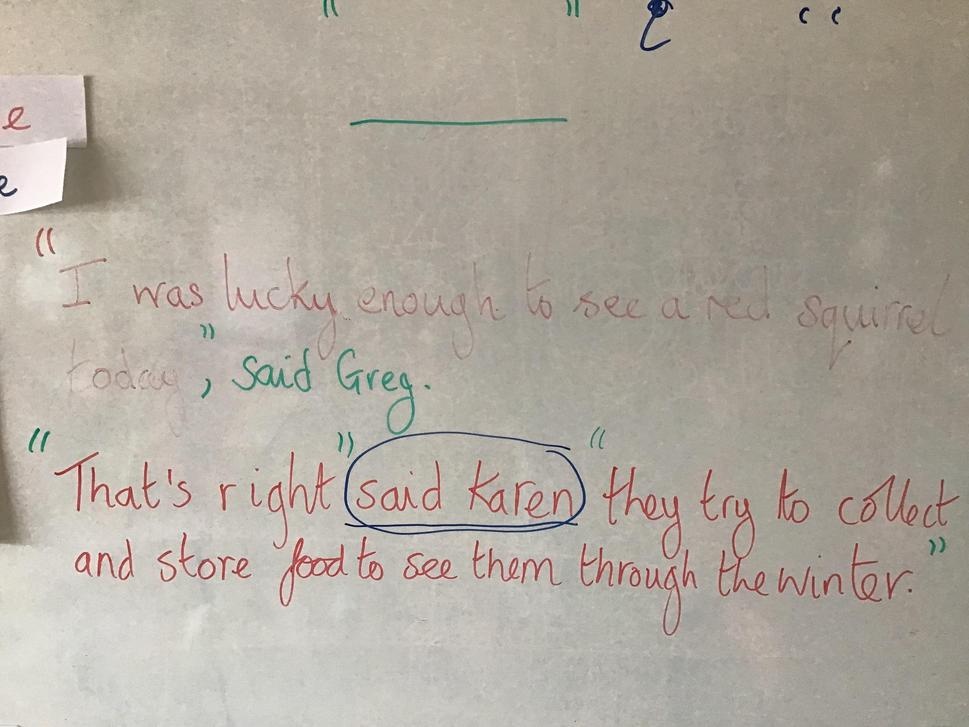 e
e
"I was lucky enough to see a red squirrel
today", said Greg.
"That's right" said Karen "they try to collect
and store food to see them through the winter."